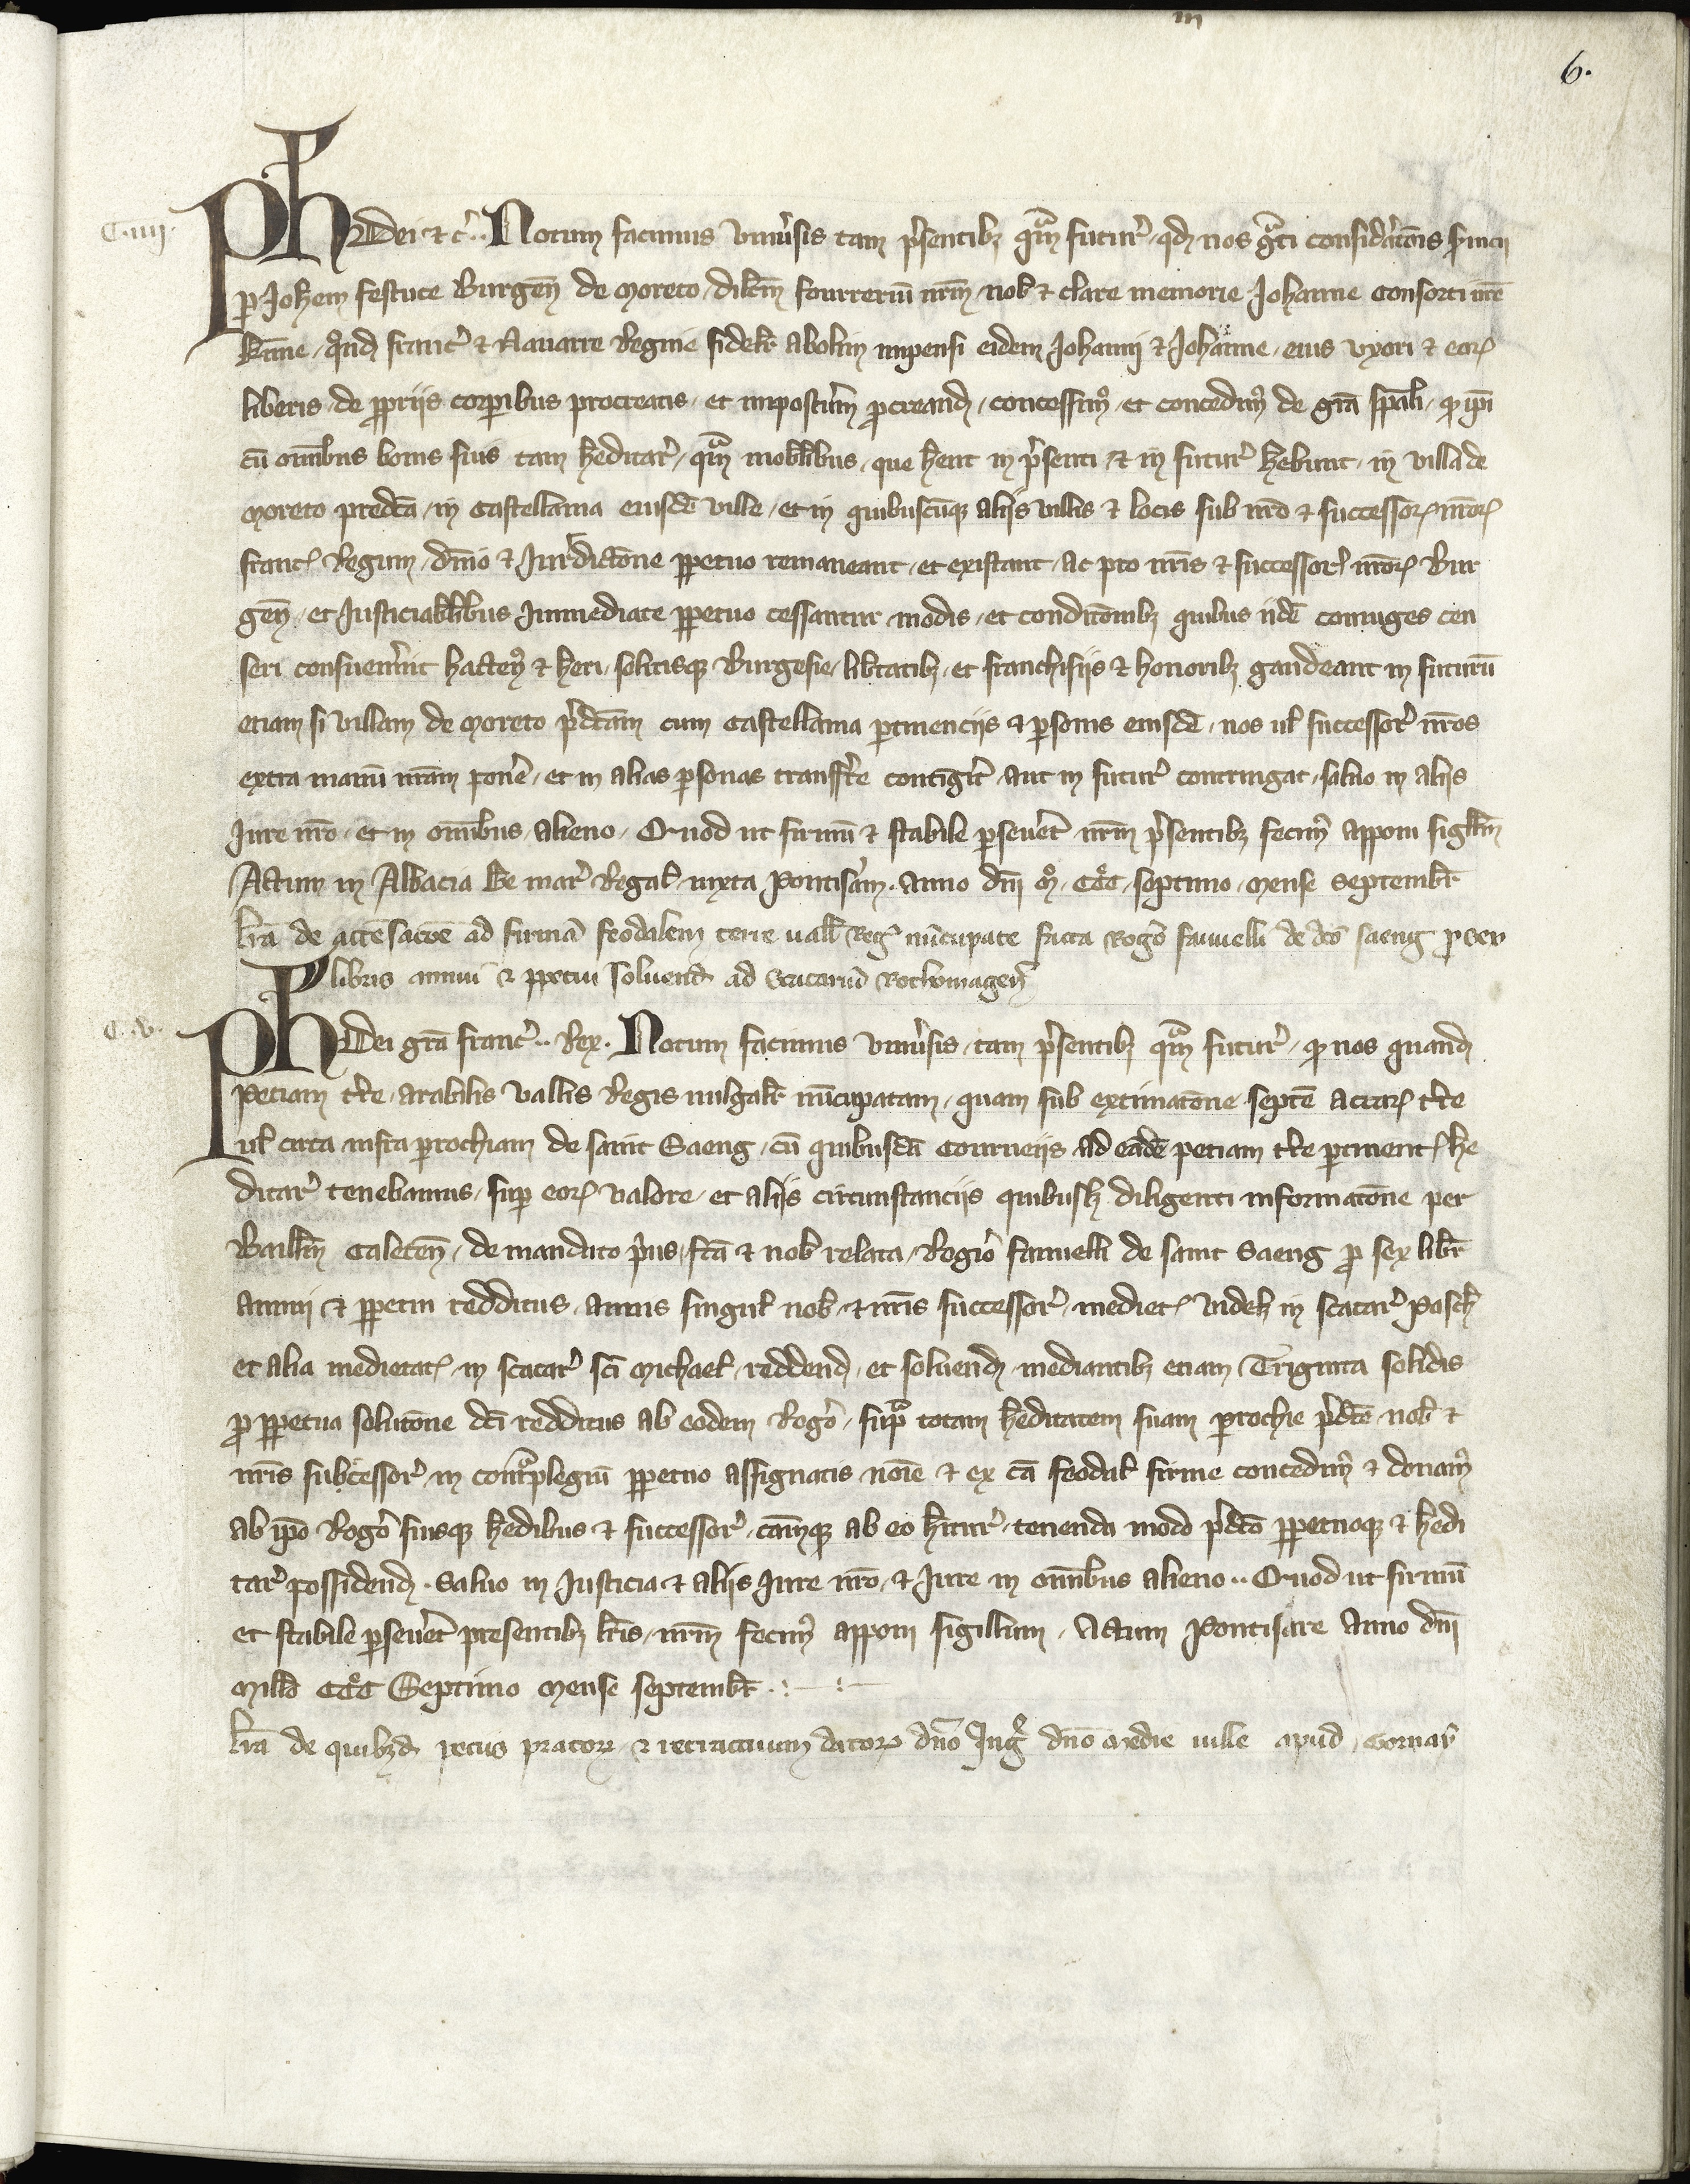 6.
C·iiij·
Ph Dei ⁊ c̉. Notum facimus vniu̓sis tam p̓sentibꝫ qͣm futur̉ qd̓ nos gͣti considᵉat̄ois s̓uicii
ꝑ Joh̄em festuce Burgen̄ de Moreto, dilc̄m fourreriū nr̄m nob̓ ⁊ clare memorie Johanne consorti nr̄e
kar̄me, qͦnd̓ franc̓ ⁊ Nauarre Regine fidelr̄ abolim impensi eidem Johanni ⁊ Johanne, eius vxori ⁊ eoꝝ
liberis de ꝓpriis corꝑibus procreatis et impostr̄m ꝓcreand̓, concessim᷒ et concedim᷒ de gr̄a sp̄ali, qꝫ ip̄i
cū om̄ibus bonis suis tam h̓editar̓, qͣm mobilibus, que h̄ent in p̓senti ⁊ in futur̓ h̄ebunt, in villa de
Moreto predc̄a, in castellania eiusdē ville, et in quibuscūqꝫ aliis villis ⁊ locis sub nr̄o ⁊ successoꝝ nr̄oꝝ
franc̓ Regum, dn̄io ⁊ Jurᶦdictōne ꝑpetuo remaneant, et existant, ac pro nr̄is ⁊ successor̓ nr̄oꝝ Bur
gen̄, et Justiciabilibus Jmmediate ꝑpetuo cessantur modis, et condit̄onibꝫ quibus iidē coniuges cen
seri consueuer̄nt hacten᷒ ⁊ h̄eri, solitisqꝫ Burgesie, lib̄tatibꝫ, et franchisiis ⁊ honoribꝫ gaudeant in futurū
etiam si villam de Moreto p̓dc̄am cum castellania ꝑtinenciis ⁊ ꝑsonis eiusdē, nos ul̓ successor̓ nr̄os
extra manū nr̄am ponē, et in alias ꝑsonas transfr̄re contigit̄, aut in futur̓ contingat, saluo in aliis
Jure nr̄o, et in om̄ibus, alieno. Quod ut firmū ⁊ stabile ꝑseuet̄ nr̄m p̓sentibꝫ fecim᷒ apponi sigillm̄
Actum in Abbacia Be mar̓ Regal̓ iuxta Pontisar̄m. Anno dn̄i mͦ, CCͦC, septimo, mense Septembr̄
lr̄a de accēsac̄oe ad firmā feodalem terre uall̓ Reg̓ nūcupate facta Rog̓o fauuelli de dc̄o saeng ꝓ sex
libris annui ⁊ ꝑpetui soluend̓ ad Scacariū Rothomagen̄
C·v·
Ph Dei gr̄a franc̓.. Rex. Notum facimus vniu̓sis, tam p̓sentibꝫ qͣm futur̓, qꝫ nos quand̓
Petiam tr̄re, arabilis vallis Regis uulgalr̄ nūcupatam, quam sub extimatōne septē acraꝝ tr̄re
ul̓ circa infra ꝑrochiam de saint Saeng, cū quibusdā corueiis ad eādē petiam tr̄re ꝑtinent̓ he
ditar̓ tenebamus, suꝑ eoꝝ valore, et aliis circunstanciis quibuslꝫ diligenti informatōne per
Baill̄m Caleten̄, de mandato p̓us fc̄a ⁊ nob̓ relata, Rog̓o fauuelli de saint Saeng ꝓ sex libr̄
annui ⁊ ꝑpetui redditus, annis singul̓ nob̓ ⁊ nr̄is successor̓, mediet̓ videlꝫ in scacar̓ Pasch̓
et alia medietat̓ in scacar̓ sc̄i Michael̓ reddend̓, et soluend̓ mediantibꝫ etiam Triginta solidis
ꝓ ꝑpetua solutōne dc̄i redditus ab eodem Rog̓o, supͣ totam h̓editatem suam ꝑrochie p̓dc̄e nob̓ ⁊
nr̄is subcessor̓ in contͣplegiū ꝑpetuo assignatis noīe ⁊ ex cā feodal̓ firme concedim᷒ ⁊ donam᷒
ab ip̄o Rog̓o suisqꝫ h̓edibus ⁊ successor̓, cāmqꝫ ab eo h̄itur̓, tenenda modo p̓dc̄o ꝑpetuoqꝫ ⁊ h̓edi
tar̓ possidend̓. Saluo in Justicia ⁊ aliis Jure nr̄o, ⁊ Jure in om̄ibus alieno.. Quod ut firmū
et stabile ꝑseuet̄ presentibꝫ lr̄is, nr̄m fecim᷒ apponi sigillum. Actum Pontisare Anno dn̄i
Mill̓o CCͦC Septimo Mense Septembr̄
lr̄a de quibꝫd̓ peciis pratoꝝ ⁊ retractuum datoꝝ dn̄o Jng̓ dn̄o medie uille apud, Gornay̓